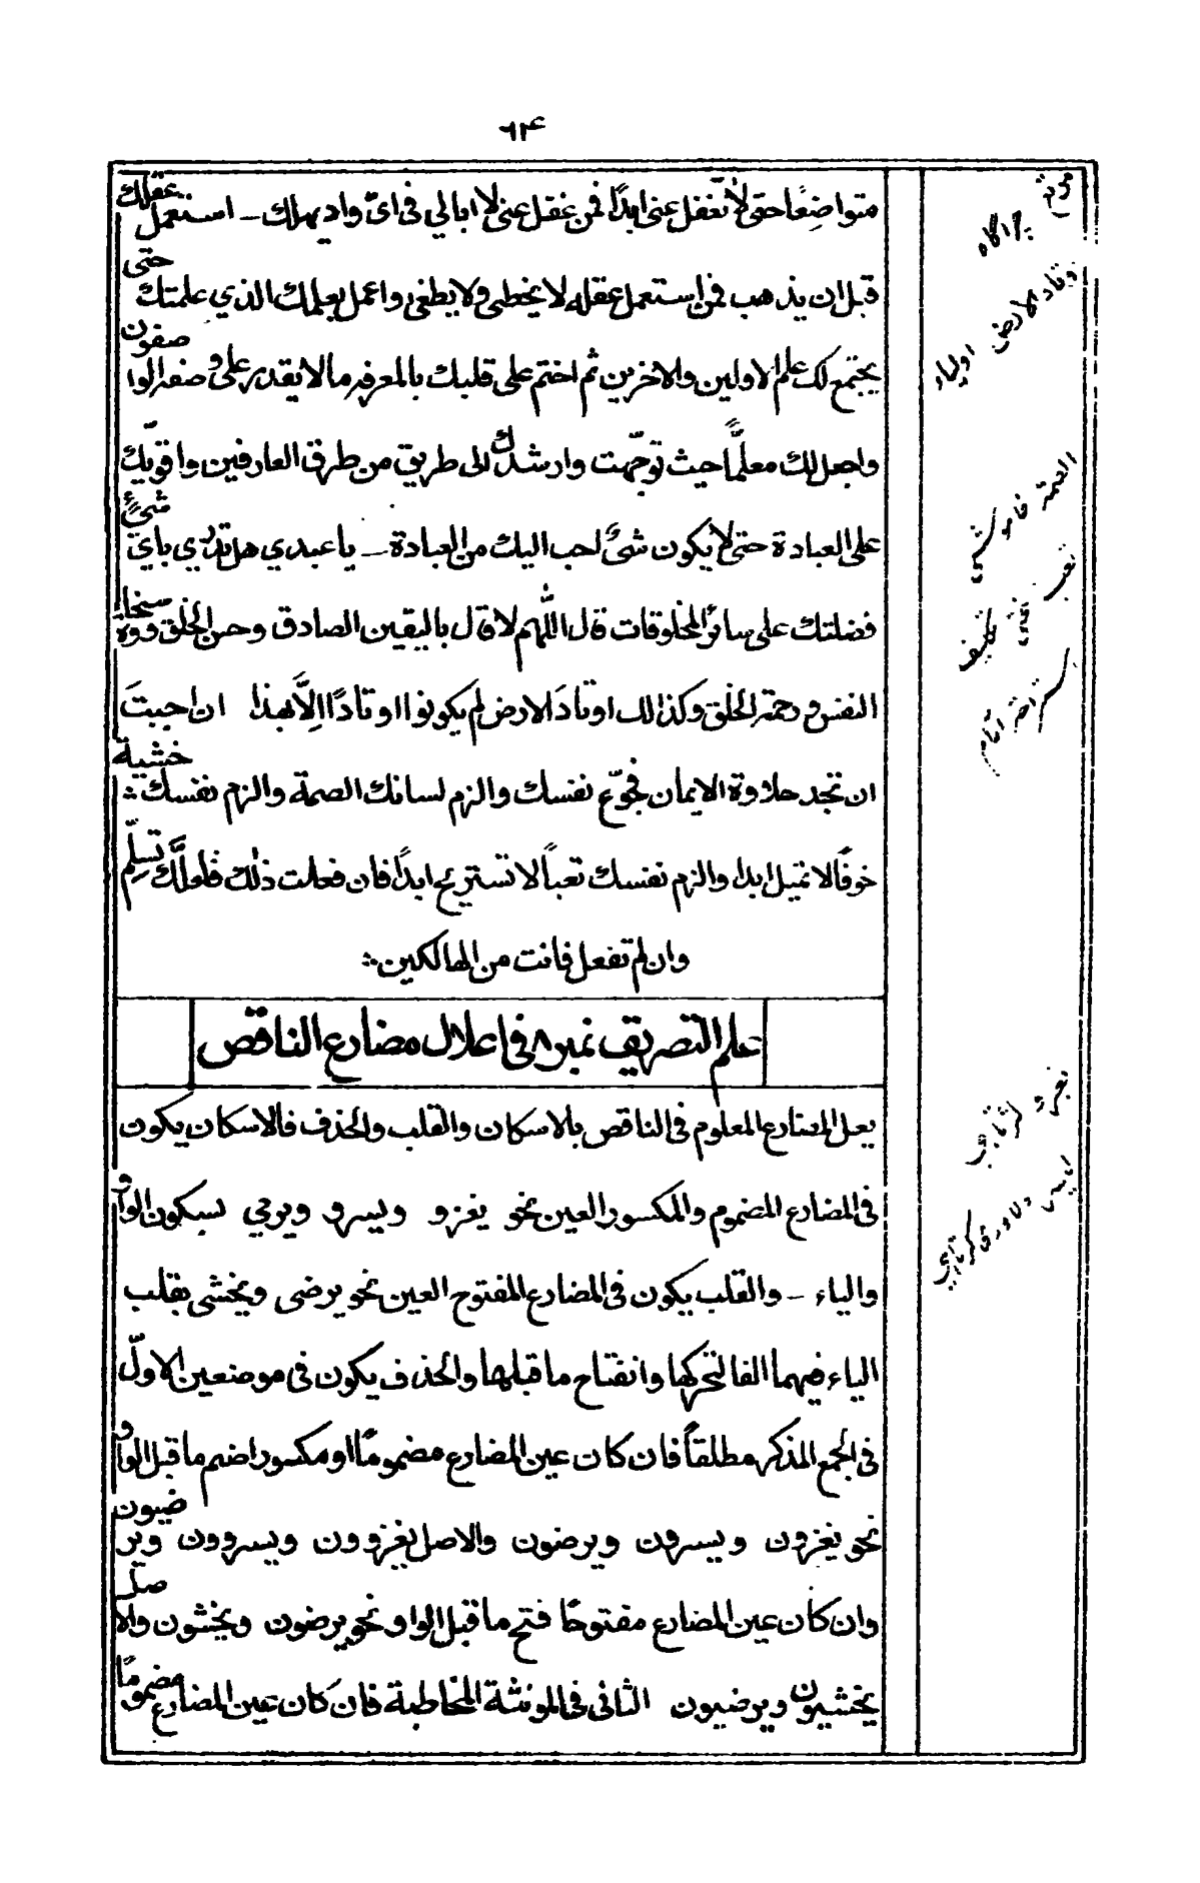 ٦٢
متواضِعًا حتى لا تغفل عنى ابدًا فمن غفل عنى لا ابالي فى اىّ واد يهلك ـ استعمل عقلك
قبل ان يذهب فمن استعمل عقله لا يخطى ولا يطغى واعمل بعلمك الذي علمتك حتى
يجتمع لك علم الاولين والاخرين ثم اختم على قلبك بالمعرفه مالا يقدر على وصفه الواصفون
واجعل لك معلمًّا حيث توجّهت وارشدك الى طريق من طرق العارفين واقوّيك
على العبادة حتى لا يكون شئ احب اليك من العبادة ـ يا عبدي هل تدري باىّ شئٍ
فضلتك على سائر المخلوقات قال اللّٰهم لا قال باليقين الصادق وحسن الخلق وسخاوة
النفس ورحمة الخلق وكذالك اوتادَ الارض لم يكونوا اوتادًا الِاَّ بهذا ان احببتَ
ان تجد حلاوة الايمان فجوّع نفسك والزم لسانك الصمة والزم نفسك خشية
خوفًا لا تميل ابدا والزم نفسك تعباً لا تستريح ابدًا فان فعلت ذٰلك فلعلّك تسلِّم
وان لم تفعل فانت من الهالكين
علم التصريف نمبر ٨ فى اعلال مضارع الناقص
يعل المضارع المعلوم فى الناقص بالاسكان والقلب والحذف فالاسكان يكون
فى المضارع المضموم والمكسور العين نحو يغزو ويسرو ويرمي بسكون الواو
والياء ـ والقلب يكون فى المضارع المفتوح العين نحو يرضى ويخشى بقلب
الياء فيهما الفا لتحركها وانفتاح ما قبلها والحذف يكون فى موضعين الاولّ
فى الجمع المذكر مطلقاً فان كان عين المضارع مضمومًا او مكسورا ضم ما قبل الواو
نحو يغزون ويسرون ويرضون والاصل يغزوون ويسروون ويرضيون
وان كان عين المضارع مفتوحًا فتح ما قبل الواو نحو يرضون ويخشون والاصل
يخشيون ويرضيون الثانى فى المونثة المخاطبة فان كان عين المضارع مضمومًا
چراگاه
وتاد الارض اولیاء
الصمة خاموشی
تعب